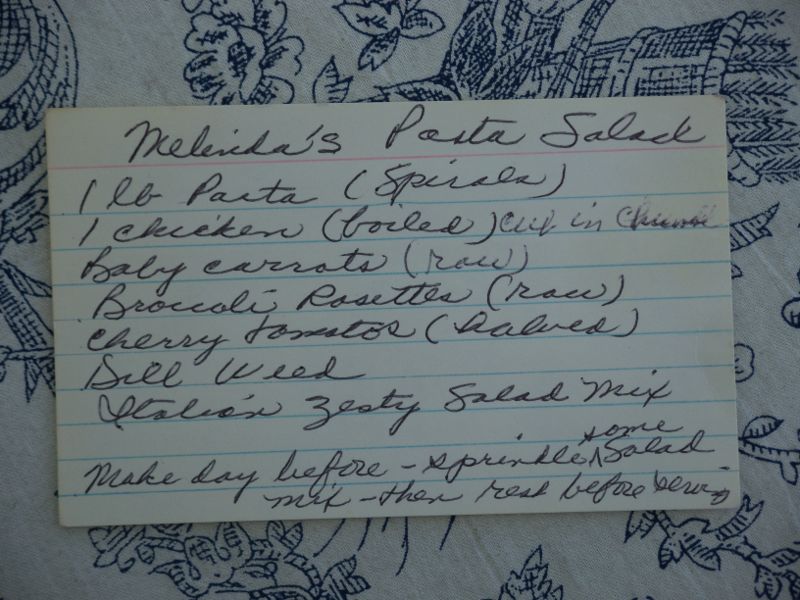 Melinda's Pasta Salad
1 lb Pasta (Spirals)
1 chicken (boiled) cut in chunks
Baby carrots (raw)
Broccoli Rosettes (raw)
Cherry tomatos (halved)
Dill Weed
Italian Zesty Salad Mix
some
Make day before - sprinkle ^ Salad
mix - then rest before serving